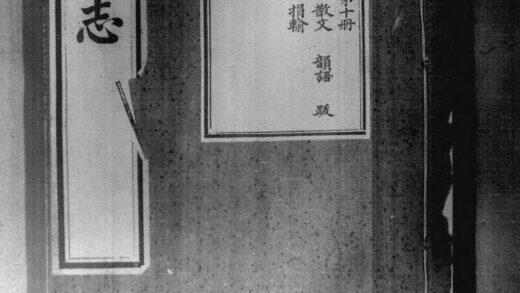 第十册
散文 韻語 跋
捐輸
志